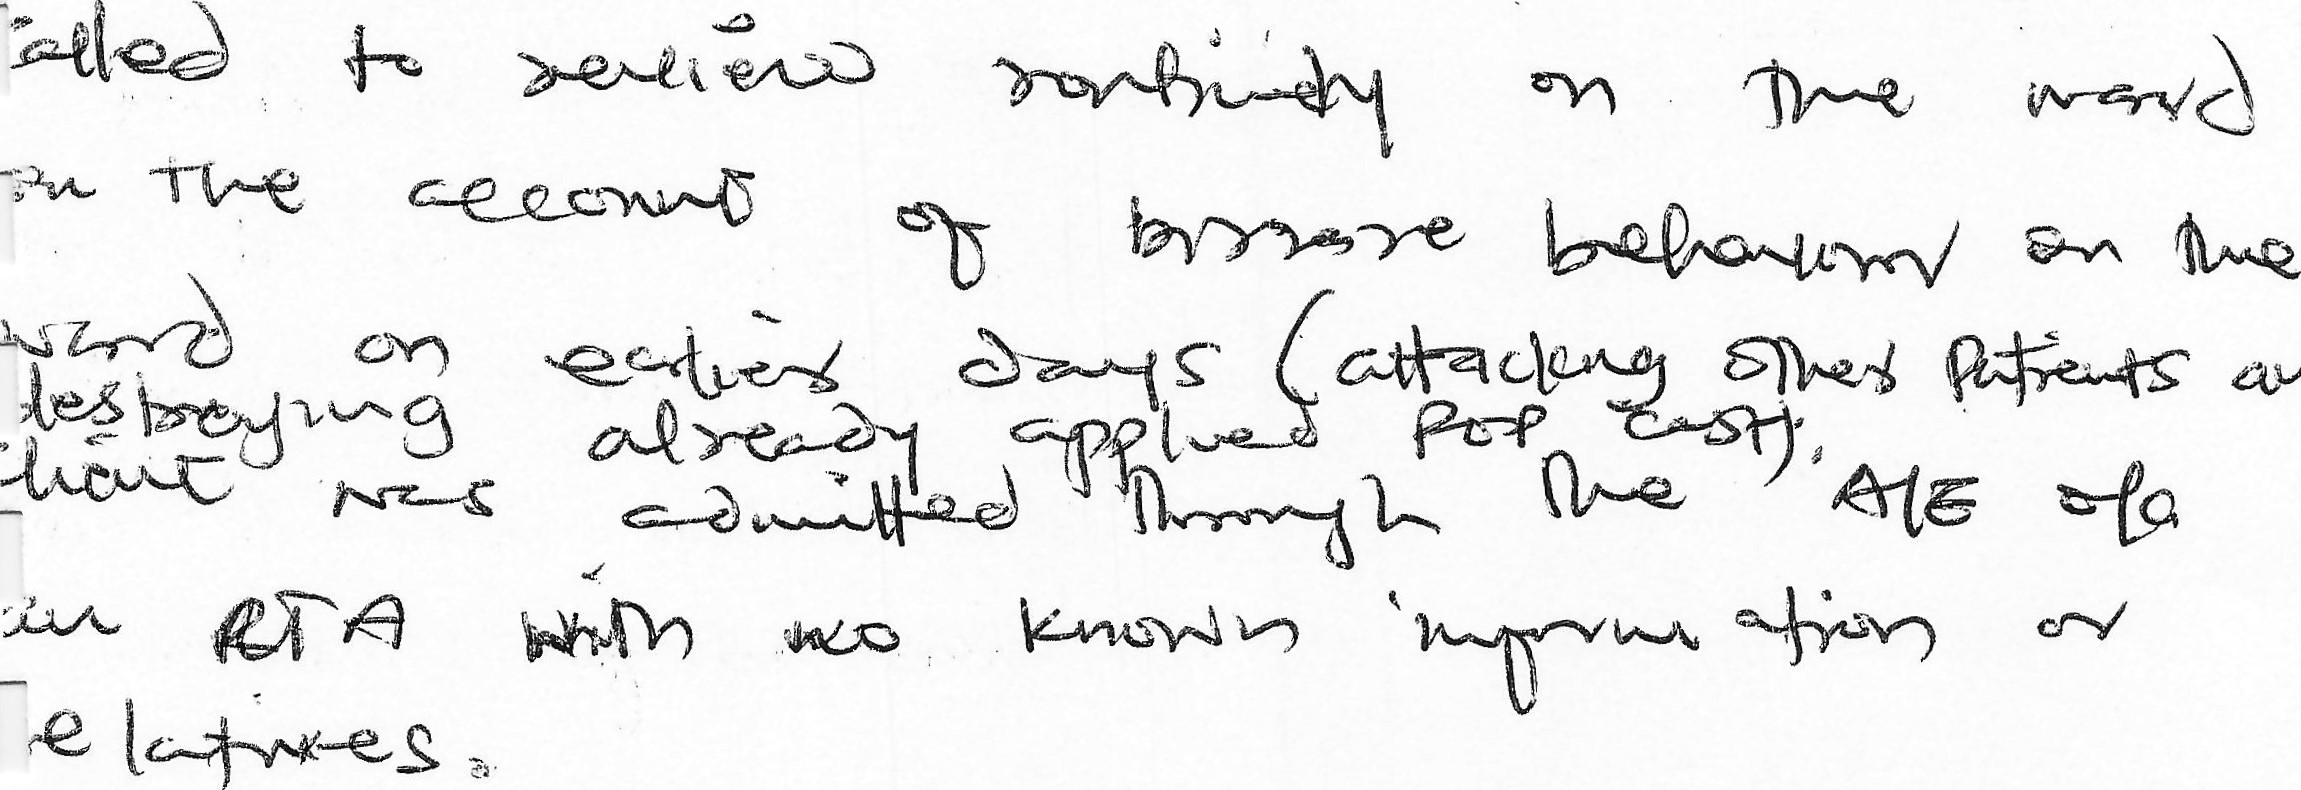 alled to review routinely on the ward
on the account of bizzare behaviour on the
ward on earlier days (attacking other patients an
destroying already applied POP cast).
client was admitted through the A/E o/a
an RTA with no known information or
elatives.